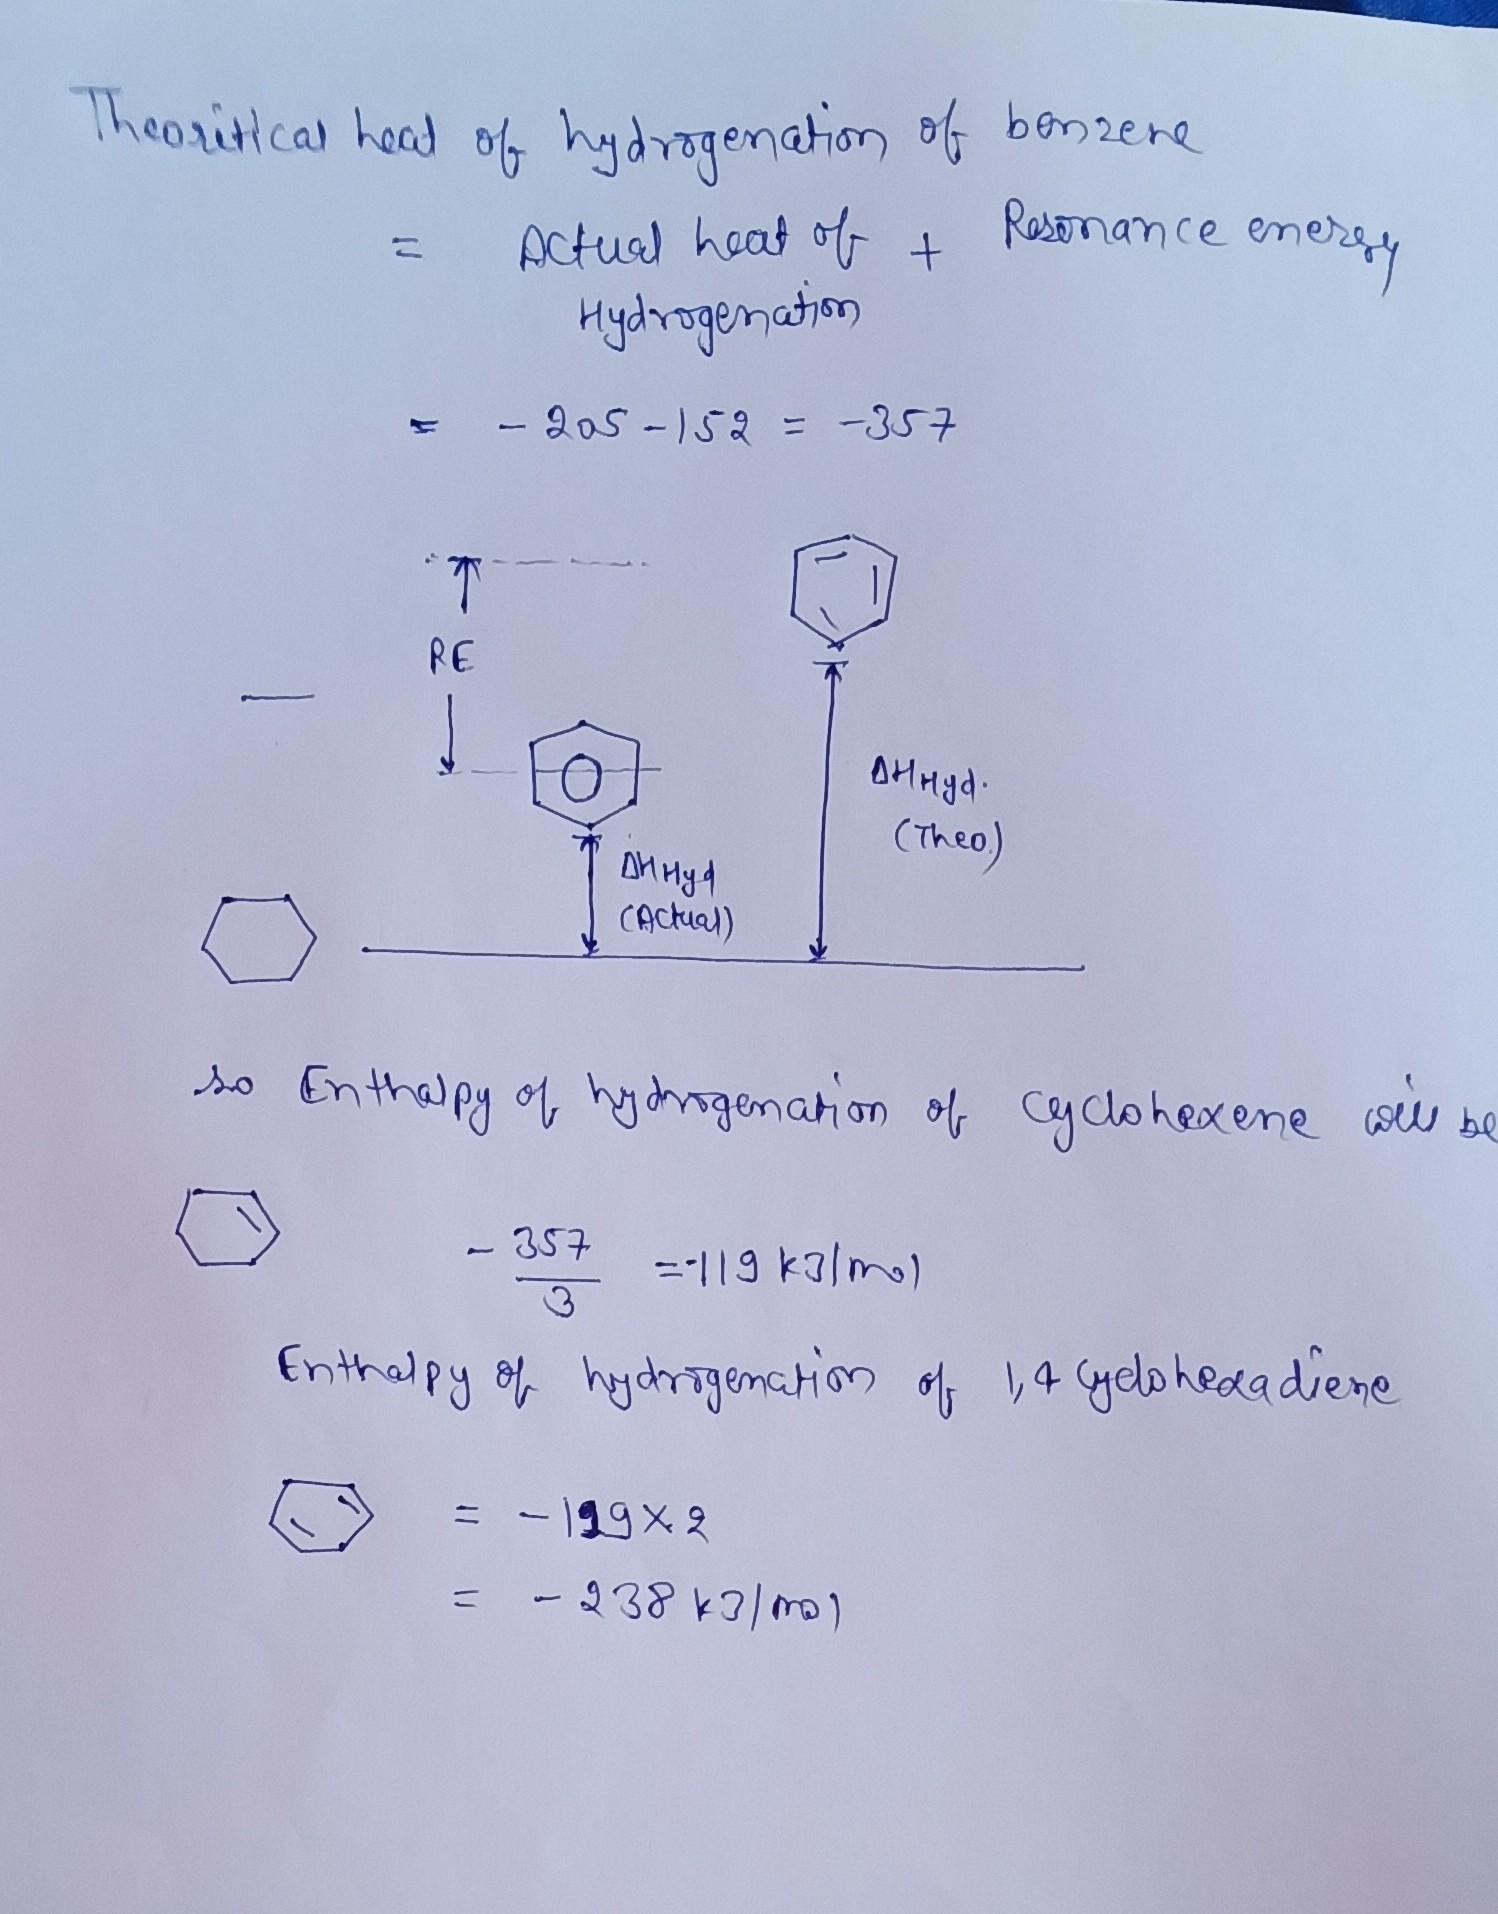 Theoritical heat of hydrogenation of benzene
= Actual heat of + Resonance energy
Hydrogenation
= - 205 - 152 = -357
RE
ΔH Hyd.
(Theo.)
ΔH Hyd
(Actual)
so Enthalpy of hydrogenation of cyclohexene will be
- 357/3 = -119 kJ/mol
Enthalpy of hydrogenation of 1,4 Cyclohexadiene
= - 119 × 2
= - 238 kJ/mol